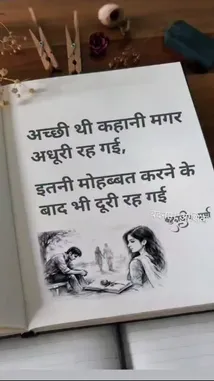 अच्छी थी कहानी मगर
अधूरी रह गई,
इतनी मोहब्बत करने के
बाद भी दूरी रह गई